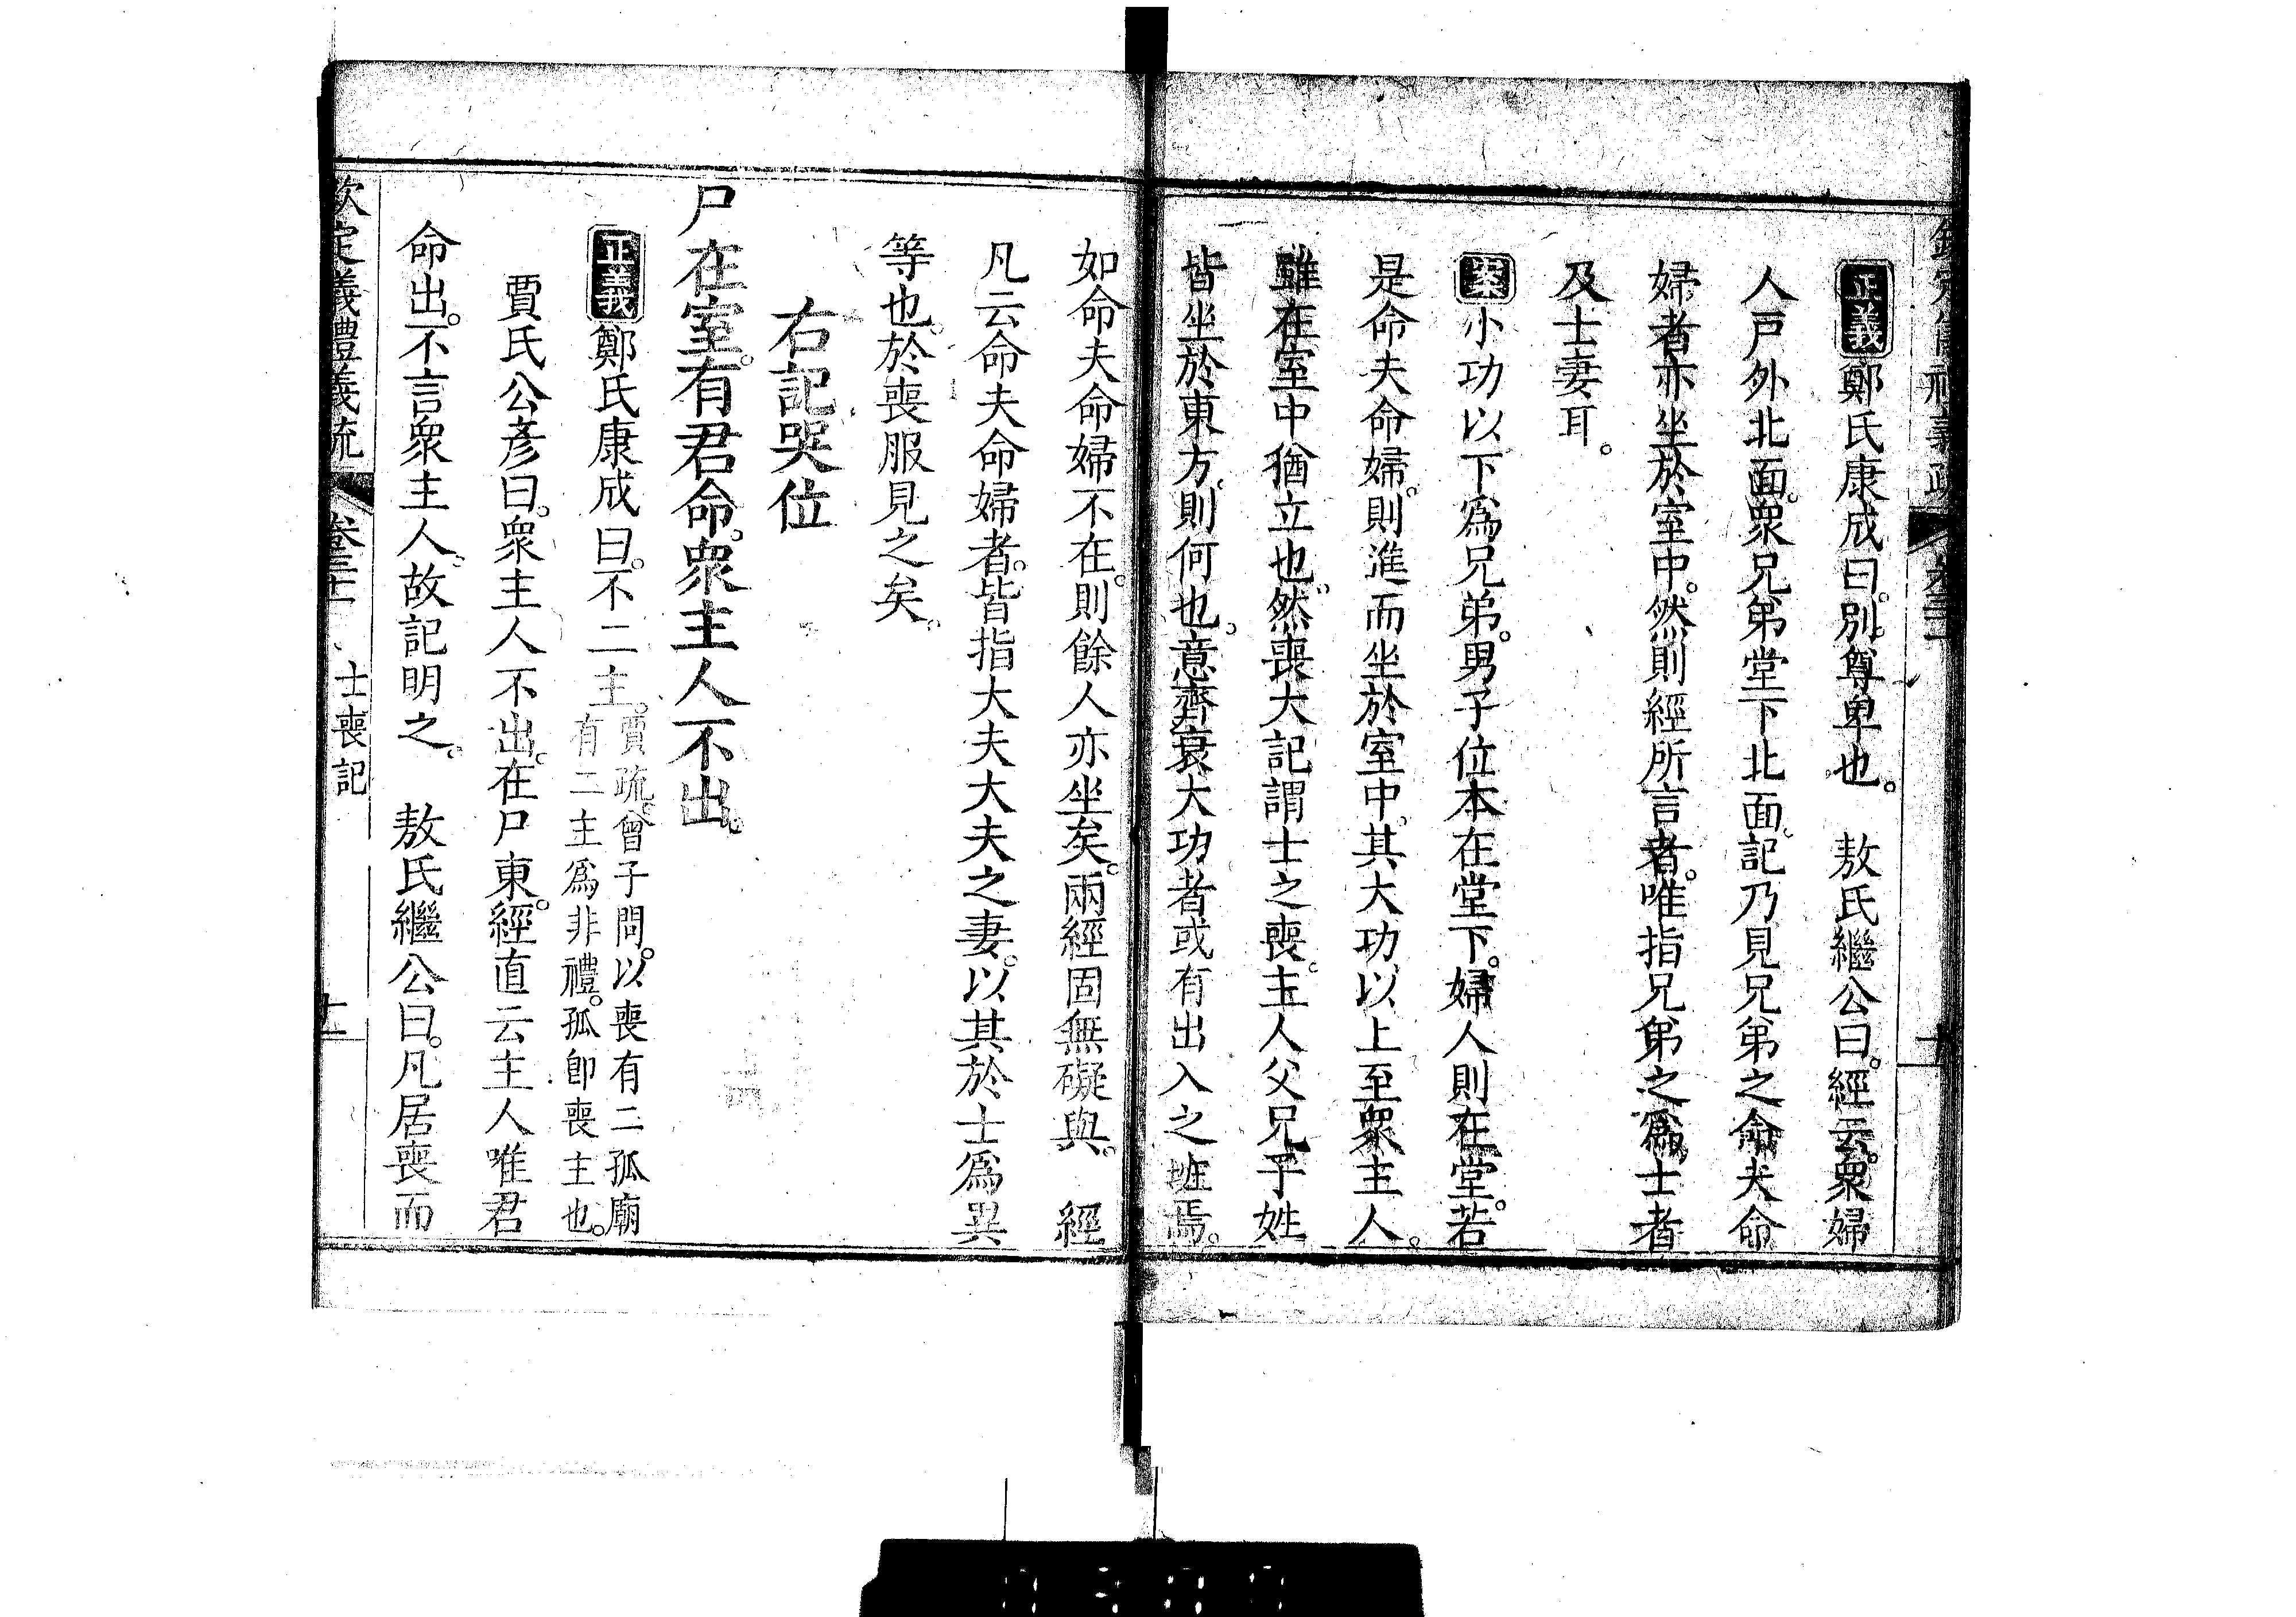 正義鄭氏康成曰。別尊卑也。　敖氏繼公曰。經云。衆婦
人戸外北面。衆兄弟堂下北面。記乃見兄弟之命夫命
婦者亦坐於室中。然則經所言者。唯指兄弟之爲士者
及士妻耳。
案小功以下爲兄弟。男子位本在堂下。婦人則在堂。若
是命夫命婦。則進而坐於室中。其大功以上至衆主人。
雖在室中猶立也。然喪大記謂士之喪。主人父兄子姓
皆坐於東方。則何也。意齊衰大功者或有出入之班焉。
如命夫命婦不在。則餘人亦坐矣。兩經固無礙與。　經
凡云命夫命婦者。皆指大夫大夫之妻。以其於士爲異
等也。於喪服見之矣。
右記哭位
尸在室。有君命。衆主人不出。
正義鄭氏康成曰。不二主。賈疏。曾子問。以喪有二孤廟
有二主爲非禮。孤卽喪主也。
賈氏公彥曰。衆主人不出。在尸東。經直云主人唯君
命出。不言衆主人。故記明之。　敖氏繼公曰。凡居喪而
欽定儀禮義疏　卷三十一　士喪記　十一